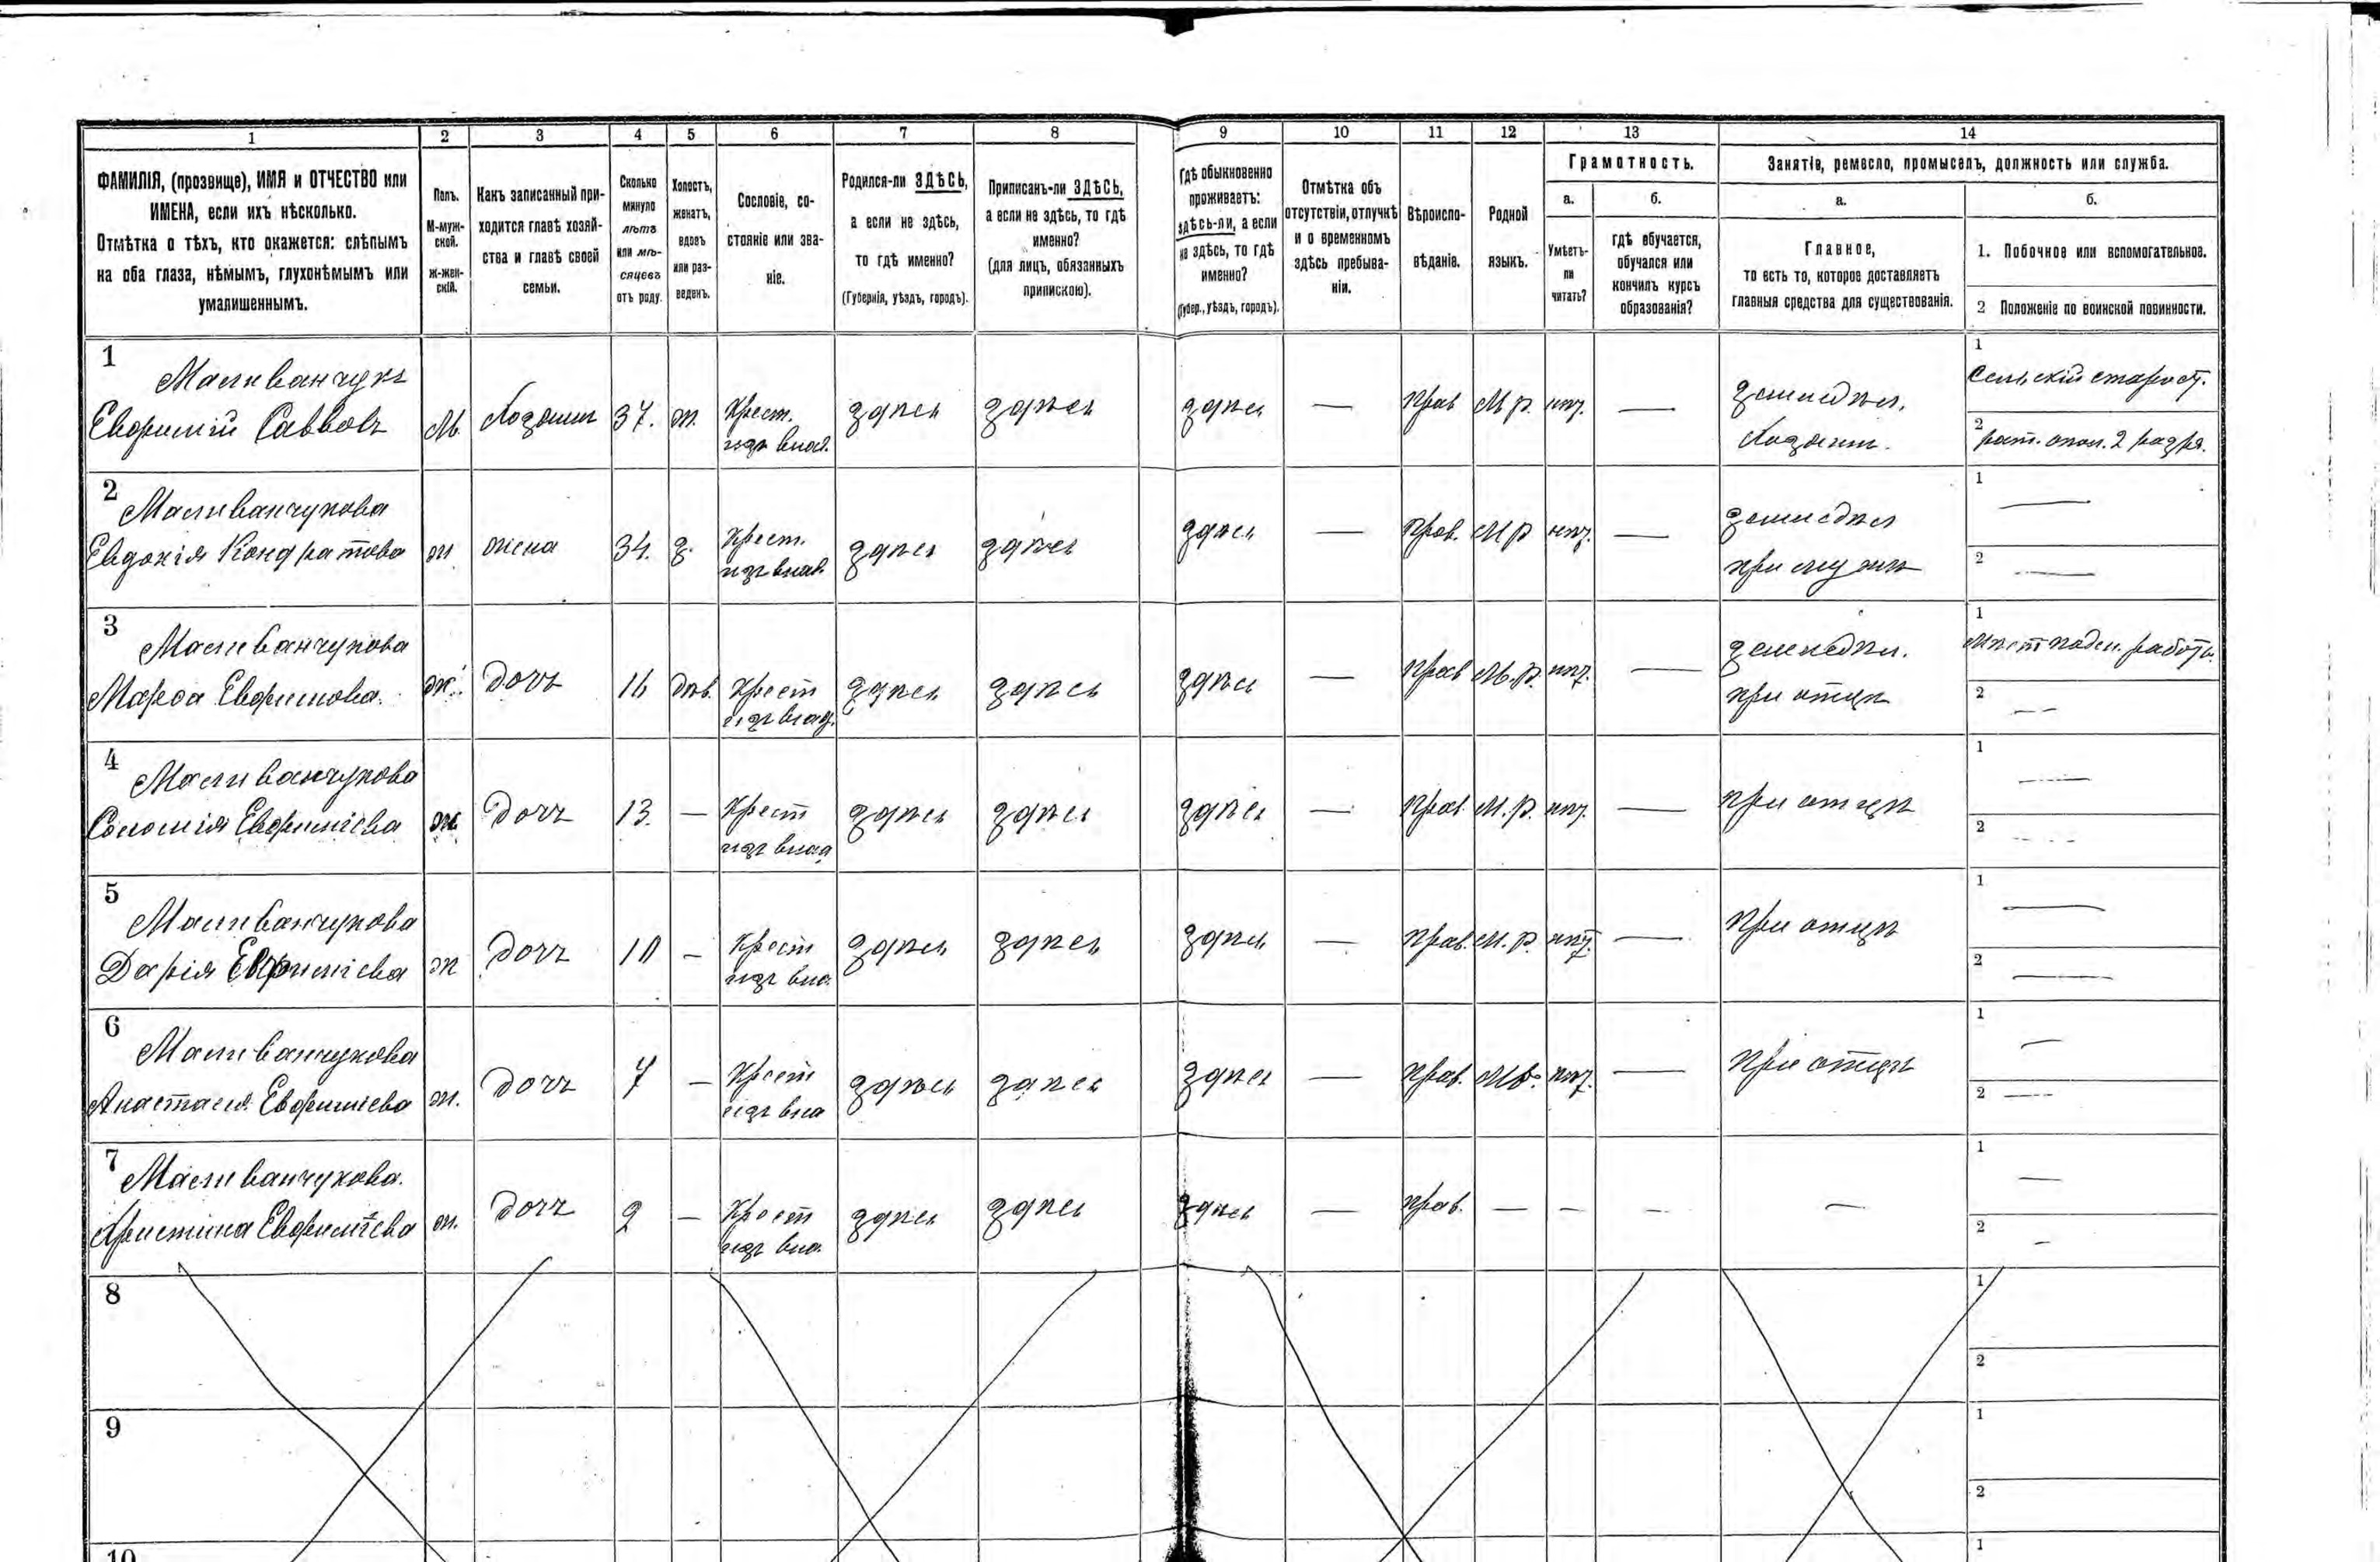 1 2 3 4 5 6 7 8 9 10 11 12 13 14
ФАМИЛІЯ, (прозвище), ИМЯ и ОТЧЕСТВО или
ИМЕНА, если ихъ нѣсколько.
Отмѣтка о тѣхъ, кто окажется: слѣпымъ
на оба глаза, нѣмымъ, глухонѣмымъ или
умалишеннымъ.
Полъ.
М-муж-
ской.
ж-жен-
скій.
Какъ записанный при-
ходится главѣ хозяй-
ства и главѣ своей
семьи.
Сколько
минуло
лѣтъ
или мѣ-
сяцевъ
отъ роду.
Холостъ,
женатъ,
вдовъ
или раз-
веденъ.
Сословіе, со-
стояніе или зва-
ніе.
Родился-ли ЗДѢСЬ,
а если не здѣсь,
то гдѣ именно?
(Губернія, уѣздъ, городъ).
Приписанъ-ли ЗДѢСЬ,
а если не здѣсь, то гдѣ
именно?
(для лицъ, обязанныхъ
припискою).
Гдѣ обыкновенно
проживаетъ:
здѣсь-ли, а если
не здѣсь, то гдѣ
именно?
(Губер., уѣздъ, городъ).
Отмѣтка объ
отсутствіи, отлучкѣ
и о временномъ
здѣсь пребыва-
ніи.
Вѣроиспо-
вѣданіе.
Родной
языкъ.
Грамотность.
а.
Умѣетъ-
ли
читать?
б.
гдѣ обучается,
обучался или
кончилъ курсъ
образованія?
Занятіе, ремесло, промыселъ, должность или служба.
а.
Главное,
то есть то, которое доставляетъ
главныя средства для существованія.
б.
1. Побочное или вспомогательное.
2 Положеніе по воинской повинности.
1
Евфимій Савовъ М. Хозяин 37. ж. Крест. здѣсь здѣсь здѣсь — прав М р. нѣт. —
из влад.
земледѣл.
Хозяин.
1 Сельскій старост.
2 рат. опол. 2 разря.
2
Евдокія Кондратова ж жена 34. з. Крест. здѣсь здѣсь здѣсь — прав. М р нѣт. —
из влад.
земледѣл
при мужѣ
1 —
2 —
3
Марфа Евфимова. ж. дочь 16 дѣв. Крест здѣсь здѣсь здѣсь — прав М. р. нѣт. —
из влад.
земледѣл.
при отцѣ
1 поден. работы
2 —
4
Соломія Евфиміева ж. дочь 13. — Крест здѣсь здѣсь здѣсь — прав М. р. нѣт. —
из влад
при отцѣ
1 —
2 —
5
Дарія Евфиміева ж дочь 10 — Крест здѣсь здѣсь здѣсь — прав. М. р. нѣт. —
из вла.
при отцѣ
1 —
2 —
6
Анастасія Евфиміева ж. дочь 7 — Крест здѣсь здѣсь здѣсь — прав. М р. нѣт. —
из вла
при отцѣ
1 —
2 —
7
Христина Евфиміева ж. дочь 2 — Крест здѣсь здѣсь здѣсь — прав. — — — —
из вла.
1 —
2 —
8
1
2
9
1
2
10
1